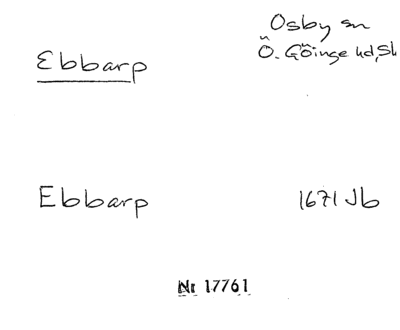 Osby sn
Ebbarp
Ö. Göinge hd, Sk
Ebbarp
1671 Jb
Nr 17761